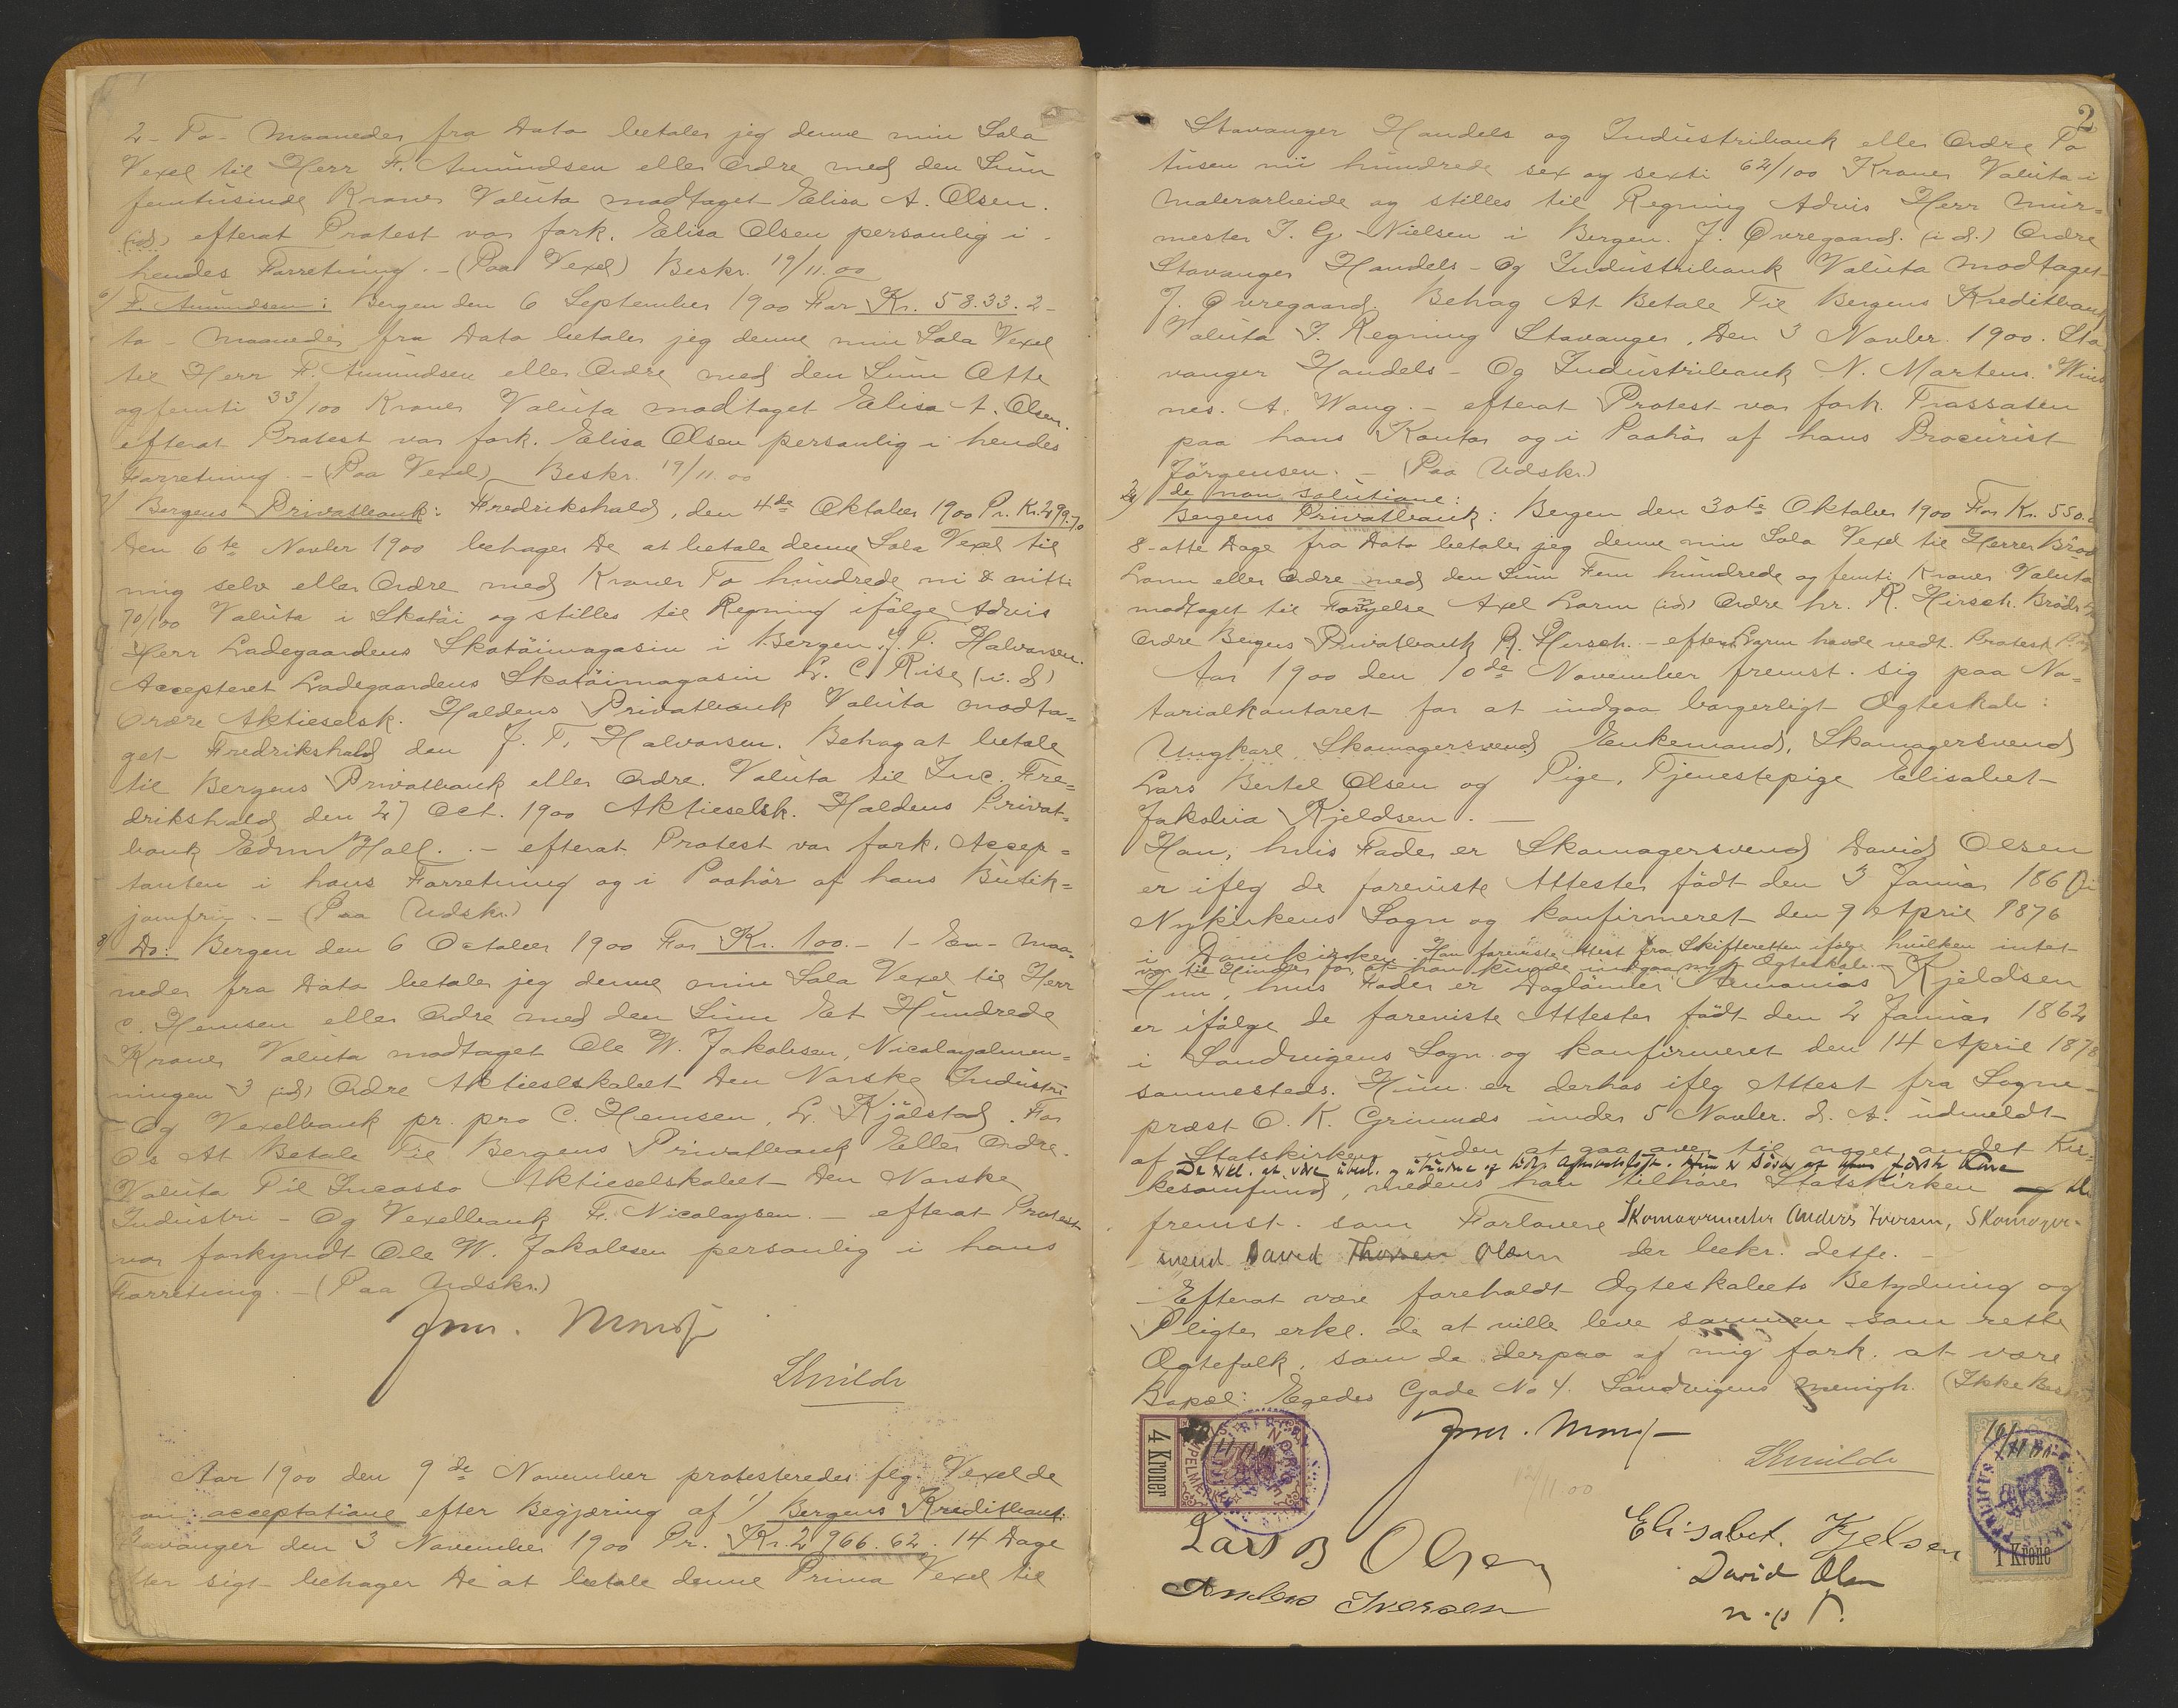 2 - To - Maaneder fra Dato betaler jeg denne min Sola
Vexel til Herr F. Amundsen eller Ordre med den Sum
femtusinde Kroner Valuta modtaget Elisa A. Olsen.
(id) efterat Protest var fork. Elisa Olsen personlig i
hendes Forretning. - (Paa Vexel) Beskr. 19/11.00
6/ F. Amundsen: Bergen den 6 September 1900 For Kr. 58.33. 2 -
to - Maaneder fra Dato betaler jeg denne min Sola Vexel
til Herr F. Amundsen eller Ordre med den Sum Otte
ogfemti 33/100 Kroner Valuta modtaget Elisa A. Olsen.
efterat Protest var fork. Elisa Olsen personlig i hendes
Forretning. - (Paa Vexel) Beskr. 19/11.00
7/ Bergens Privatbank: Fredrikshald, den 4de Oktober 1900 Pr. Kr. 299.70
Den 6te Novber 1900 behager De at betale denne Sola Vexel til
mig selv eller Ordre med Kroner To hundrede ni & nitti
70/100 Valuta i Skotöi og stilles til Regning ifölge Advis
Herr Ladegaardens Skotöimagasin i Bergen. J. T. Halvorsen.
Accepteret Ladegaardens Skotöimagasin L. C. Rise (i. d)
Ordre Aktieselsk. Haldens Privatbank Valuta modta=
get Fredrikshald den J. T. Halvorsen. Behag at betale
til Bergens Privatbank eller Ordre. Valuta til Inc. Fre=
drikshald den 27 Oct. 1900 Aktieselsk. Haldens Privat=
bank Edm Hall. - efterat Protest var fork. Accep=
tanten i hans Forretning og i Paahör af hans Butik=
jomfru. - (Paa Udskr.)
8/ Do: Bergen den 6 October 1900 For Kr. 100. - 1 - En - Maa=
neder fra Dato betaler jeg denne min Sola Vexel til Herr
C. Hemsen eller Ordre med den Sum Et Hundrede
Kroner Valuta modtaget Ole W. Jakobsen, Nicolaysalmen=
ningen 3 (id) Ordre Aktieselskabet Den Norske Industri
- Og Vexelbank pr. pro C. Hemsen, L. Kjölstad. For
Os At Betale Til Bergens Privatbank Eller Ordre.
Valuta Til Incasso Aktieselskabet Den Norske
Industri - Og Vexelbank F. Nicolaysen. - efterat Protest
var forkyndt Ole W. Jakobsen personlig i hans
Forretning. - (Paa Udskr.)
Aar 1900 den 9de November protesteredes flg. Vexel de
non acceptatione efter Begjæring af 1/ Bergens Kreditbank:
Stavanger den 3 November 1900 Pr. Kr. 2966.62. 14 Dage
efter sigt behager De at betale denne Prima Vexel til
2
Stavanger Handels og Industribank eller Ordre To
tusen ni hundrede sex og sexti 62/100 Kroner Valuta i
Malerarbeide og stilles til Regning Advis Herr Mur=
mester J. G. Nielsen i Bergen. J. Övregaard. (i d.) Ordre
Stavanger Handels - Og Industribank Valuta modtaget
J. Övregaard. Behag At Betale Til Bergens Kreditbank
Valuta I Regning Stavanger, Den 3 Novber. 1900. Sta
vanger Handels - Og Industribank N. Martens. Wins
nes. A. Wang. - efterat Protest var fork. Trassaten
paa hans Kontor og i Paahör af hans Procurist
Jörgensen. - (Paa Udskr.)
de non solutione:
2/ Bergens Privatbank: Bergen den 30te Oktober 1900 For Kr. 550.
8 - otte Dage fra Dato betaler jeg denne min Sola Vexel til Herrer Bröd
Lorm eller Ordre med den Sum Fem hundrede og femti Kroner Valuta
modtaget til Fornyelse Axel Lorm (id) Ordre hr. R. Hirsch. Brödr.
Ordre Bergens Privatbank R. Hirsch. - efterat Lorm havde vedt. Protest
Aar 1900 den 10de November fremst. sig paa No=
tarialkontoret for at indgaa borgerligt Ægteskab:
Ungkarl Skomagersvend Enkemand, Skomagersvend
Lars Bertel Olsen og Pige, Tjenestepige Elisabet
Jakobia Kjeldsen. -
Han, hvis Fader er Skomagersvend David Olsen
er iflg de foreviste Attester födt den 3 Januar 1860 i
Nykirkens Sogn og konfirmeret den 9 April 1876
i Domkirken. Han foreviste Attest fra Skifteretten ifölge hvilken intet
var til Hinder for at han kunde indgaa nyt Ægteskab. -
Hun, hvis Fader er Daglönner Ananias Kjeldsen
er ifölge de foreviste Attester födt den 2 Januar 1862
i Sandvigens Sogn og konfirmeret den 14 April 1878
sammesteds. Hun er derhos iflg Attest fra Sogne-
præst O. K. Grimnes under 5 Novber. d. A. udmeldt
af Statskirken uden at gaa over til noget andet Kir=
kesamfund, medens han tilhörer Statskirken
fremst. som Forlovere Skomagermester Anders Iversen, Skomager-
svend David Olsen der bekr. dette. -
- Efterat være foreholdt Ægteskabets Betydning og
Pligter erkl. de at ville leve sammen som rette
Ægtefolk, som de derpaa af mig fork. at være
Bopæl: Egedes Gade No 4. Sandvigens menigh. (Ikke Beskr)
4 Kroner
12/11.00
1 Krone
Lars B Olsen
Elisabet. Kjelsen
Anders Iversen
David Olsen
m. p. P.